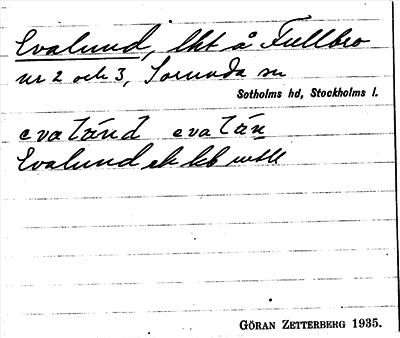 Evalund, lht å Fullbro
nr 2 och 3, Sorunda sn
Sotholms hd, Stockholms l.
evalánd evalán
Evalund ek kb
GÖRAN ZETTERBERG 1935.